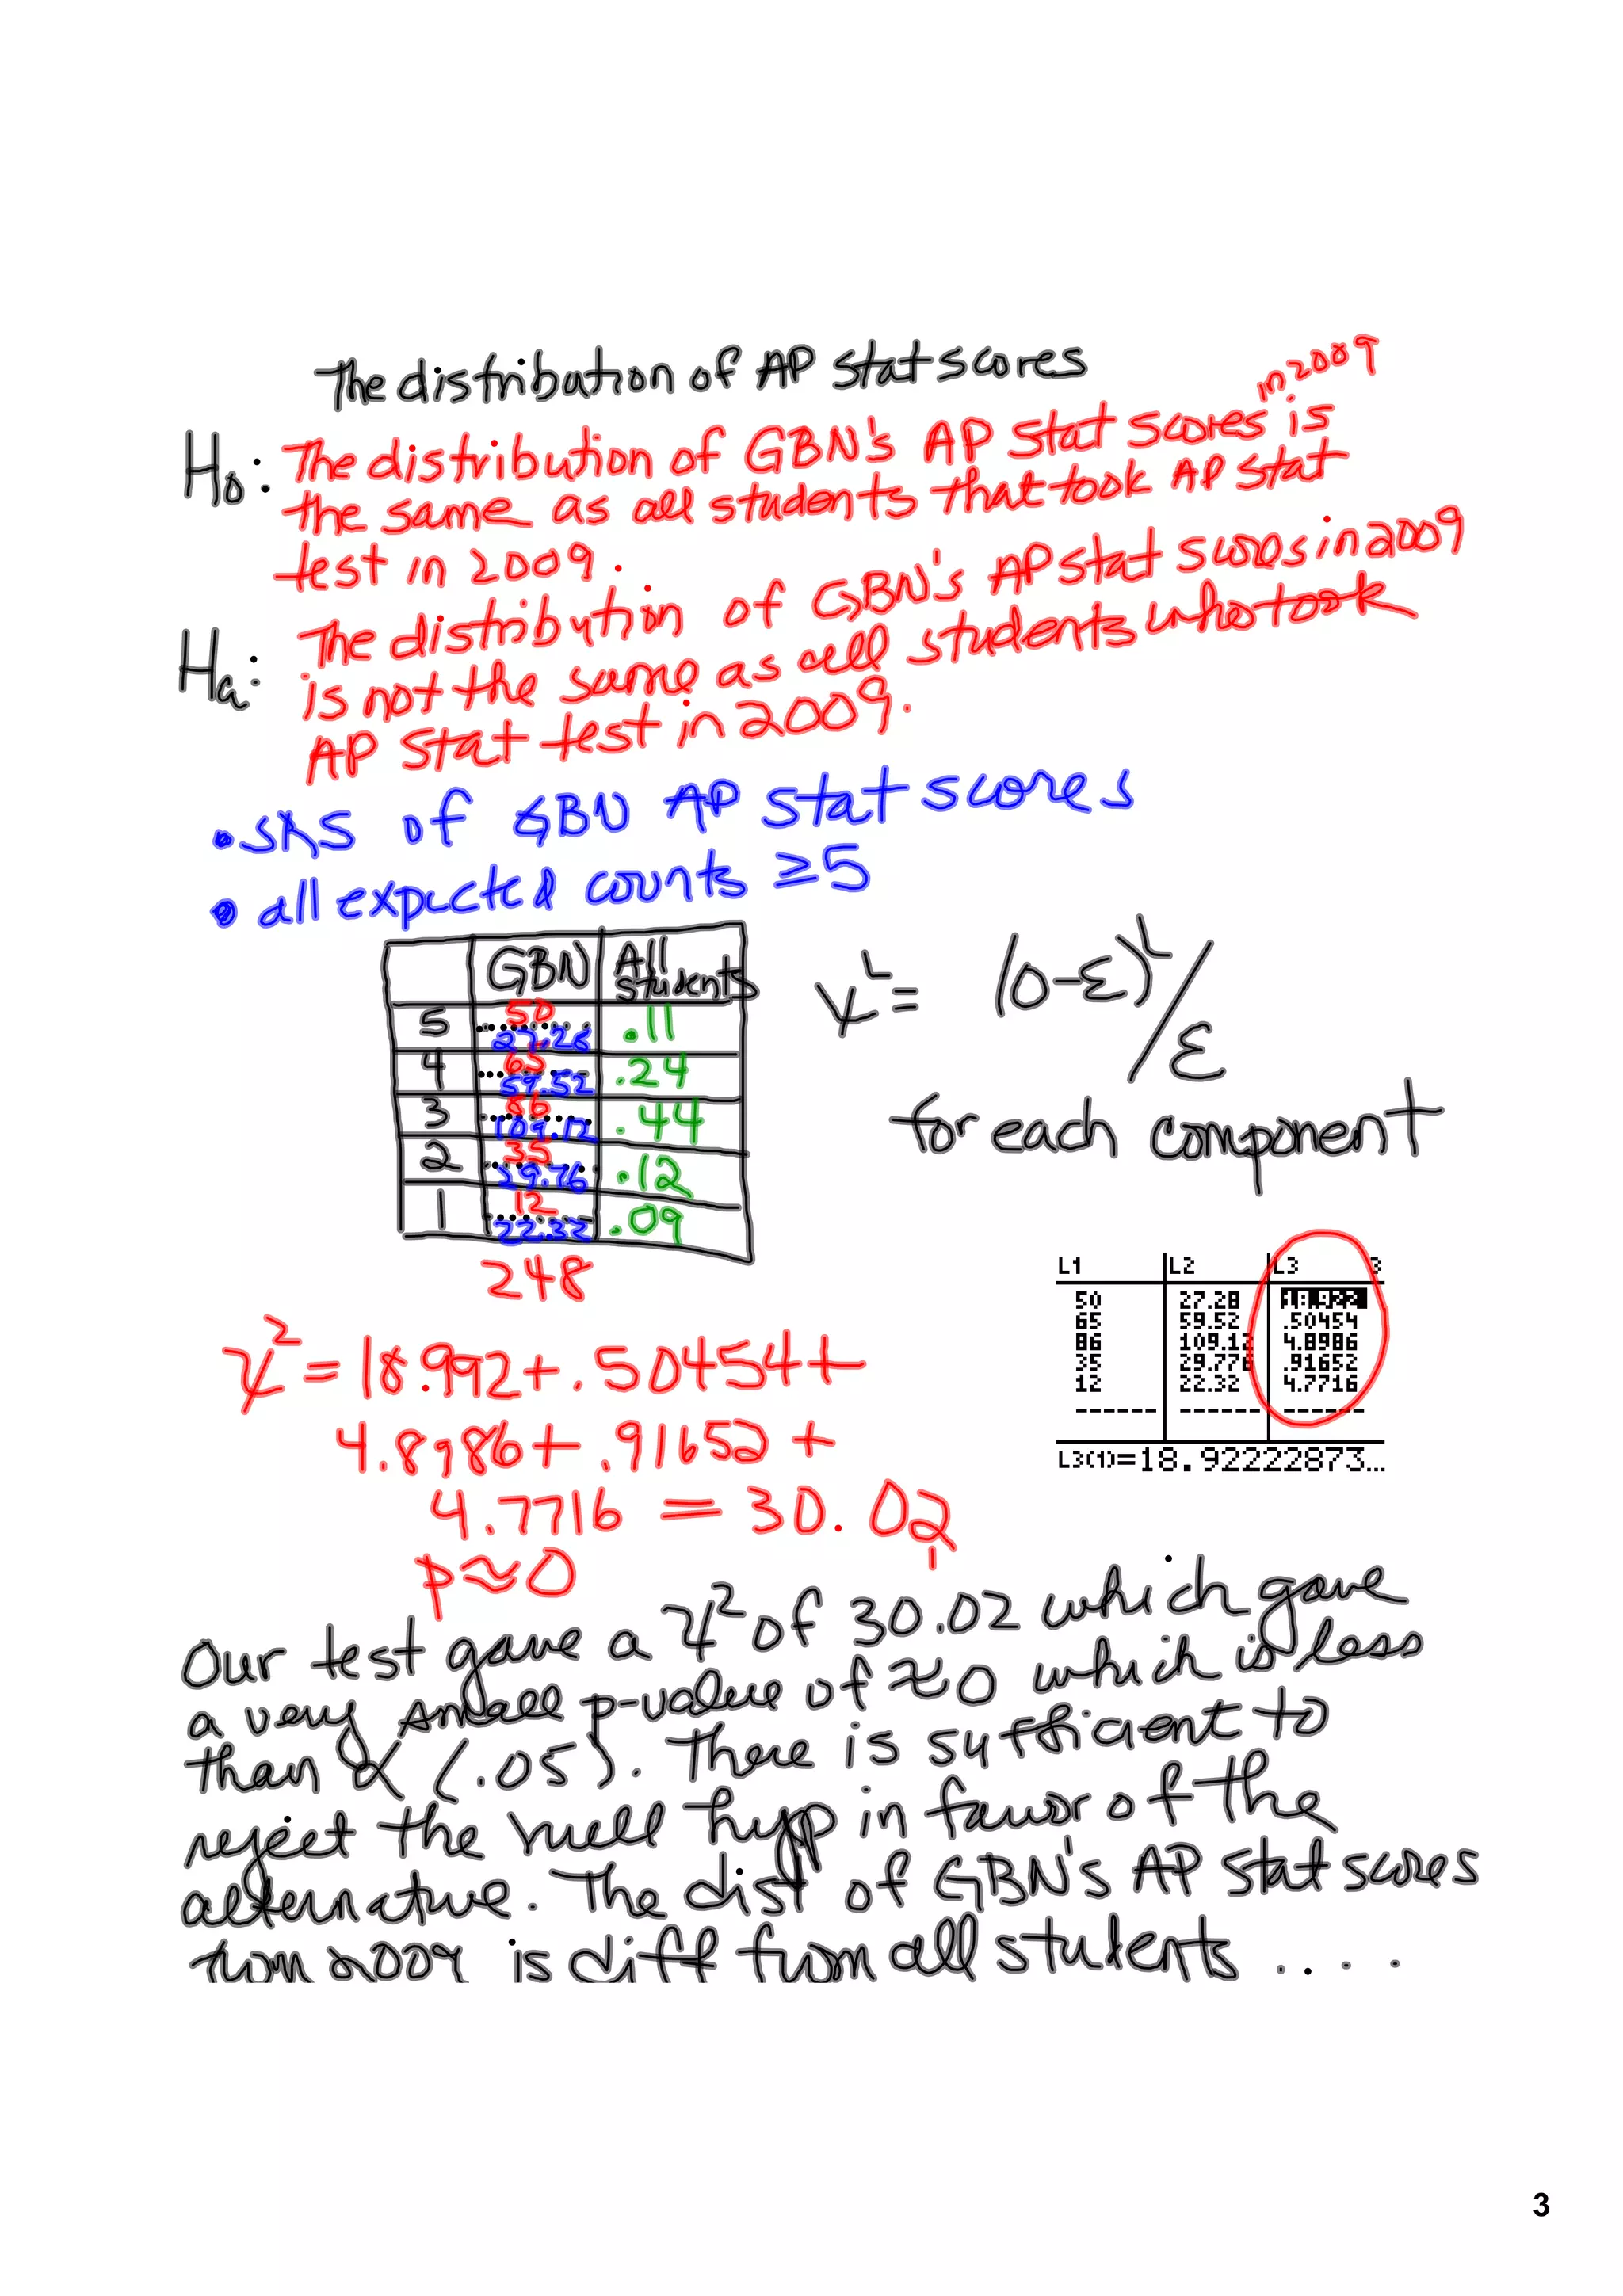 The distribution of AP Stat scores
in 2009
H₀: The distribution of GBN's AP Stat scores is
the same as all students that took AP Stat
test in 2009.
Ha: The distribution of GBN's AP Stat scores in 2009
is not the same as all students who took
AP Stat test in 2009.
• SRS of GBN AP Stat scores
• all expected counts ≥5
GBN All students
5 50 27.28 .11
4 65 59.52 .24
3 86 109.12 .44
2 35 29.76 .12
1 12 22.32 .09
248
χ²= (O-E)²/E
for each component
L1 L2 L3 3
50 27.28 18.922
65 59.52 .50454
86 109.12 4.8986
35 29.776 .91652
12 22.32 4.7716
------ ------ ------
L3(1)=18.92222873...
χ²=18.992+.50454+
4.8986+.91652+
4.7716=30.02
p≈0
Our test gave a χ² of 30.02 which gave
a very small p-value of ≈0 which is less
than α (.05). There is sufficient to
reject the null hyp in favor of the
alternative. The dist of GBN's AP Stat scores
from 2009 is diff from all students....
3